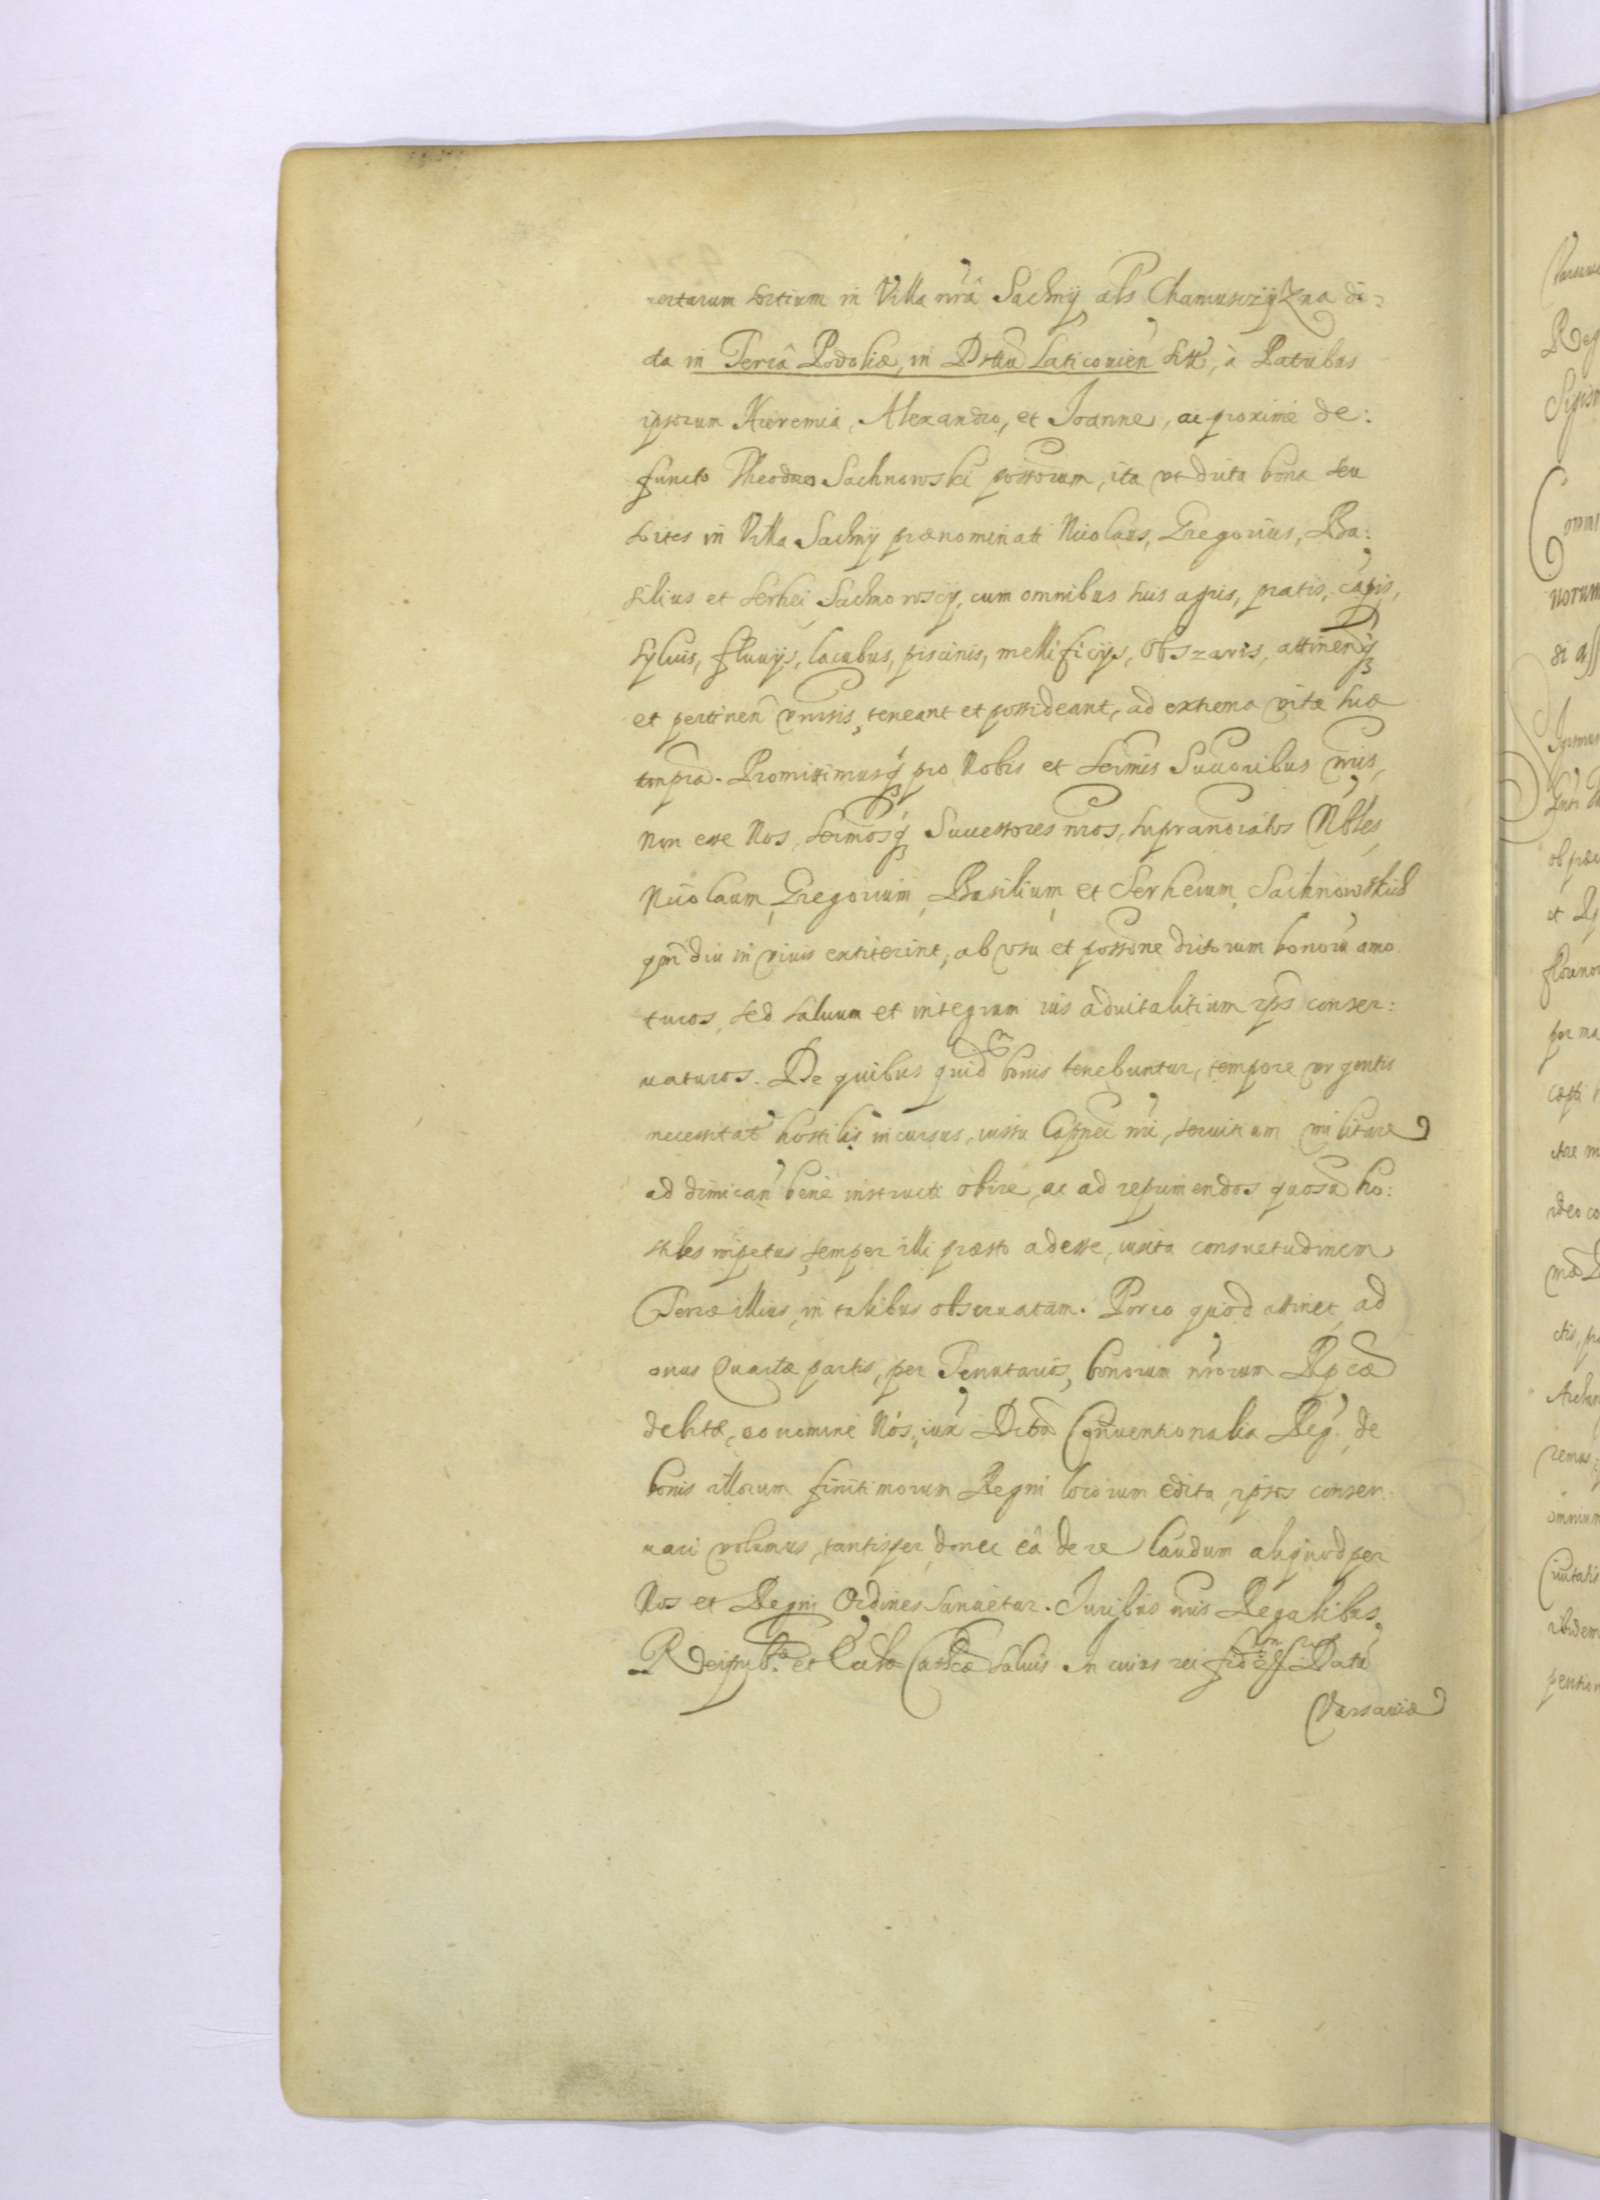 certarum sortium in Villa nrâ Sachny als Chamusczyzna di-
cta in Terrâ Podoliæ, in Dsttu Laticouien sitt, à Patribus
ipsorum Hieremia, Alexandro, et Joanne, ac proximè de:
functo Theodoro Sachnowski possorum, ita vt dicta bona seu
sortes in Villa Sachny prænominati Nicolaus, Gregorius, Ba:
silius et Serhei Sachnowscy, cum omnibus suis agris, pratis, cãpis,
syluis, fluuijs, lacubus, piscinis, mellificijs, Obszaris, attinenq
et pertinen vniusis, teneant et possideant, ad extrema vitæ suæ
tempora. Promittimusq pro Nobis et Sermis Succoribus nris,
non esse Nos, Sermosq Successores nros, supranoiatos Nbles
Nicolaum, Gregorium, Basilium et Serheium Sachnowskie
qm diu in viuis extiterint, ab vsu et possone dictorum bonorũ amo
turos, sed saluum et integrum ius aduitalitium ipsis conser:
uaturos. De quibus quid bonis tenebuntur, tempore vrgentis
necessitat hostilis incursus, iussu Capnei nri, seruitium militare
ad dimican bene instructi obire, ac ad reprimendos quosu ho:
stiles impetus, semper illi præsto adesse, iuxta consuetudinem
Terræ illius, in talibus obseruatam. Porro quod attinet ad
onus Quartæ partis, per Tenutarios bonorum nrorum Rpcæ
debitæ, eo nomine Nos, iux Dctã Conuentionalia Reg. de
bonis illorum finitimorum Regni locorum edita, ipsos conser
uari volumus, tantisper donec eâ de re laudum aliquod per
Nos et Regni Ordines sanciretur. Juribus nris Regalibus,
Reipub. et Ecclæ Catholcæ saluis. In cuius rei fid Datũ
Varsauiæ